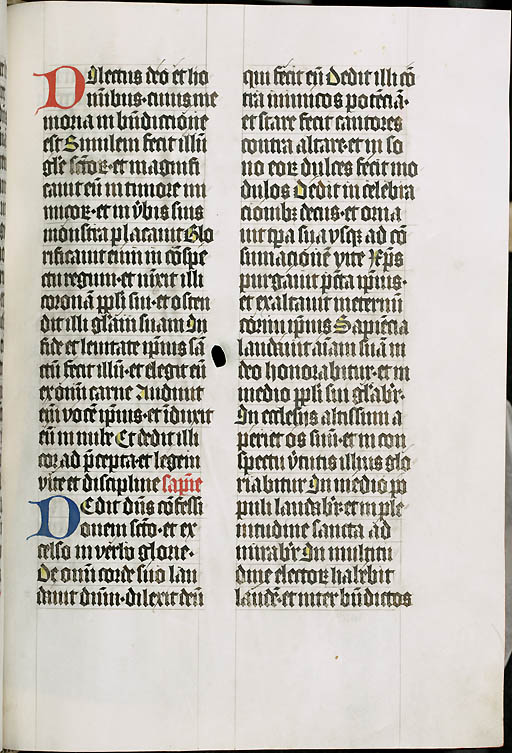 Dilectus deo et ho
minibus· cuius me
moria in bñdictione
est Similem fecit illũ
glẽ sctoꝝ· et magnifi
cauit eũ in timore ini
micoꝝ· et in v̾bis suis
monstra placauit Glo
rificauit eum in cõspe
ctu regum· et iuxit illi
coronã ppli sui· et osten
dit illi glãm suam In
fide et lenitate ipius sã
ctũ fecit illũ· et elegit eũ
ex om̃i carne Audiuit
eĩ vocẽ ipius· et ĩduxit
eũ in nube Et dedit illi
cor ad p̃cepta· et legem
vite et discipline sapie
Dedit dñs cõfessi
onem scto· et ex
celso in verbo glorie·
De om̃i corde suo lau
dauit dñm· dilexit deũ
qui fecit eũ Dedit illi cõ
tra inimicos potẽciã·
et stare fecit cantores
contra altare· et in so
no eoꝝ dulces fecit mo
dulos Dedit in celebra
cionibꝫ decus· et orna
uit tpa sua vsqꝫ ad cõ
sumacionẽ vite Xp̃s
purgauit pcta ipius·
et exaltauit in eternũ
cornu ipius Sapiẽcia
laudauit aĩam suã in
deo honorabitur· et in
medio ppli sui gl̾abr̃·
In ecclesijs altissimi a
periet os suũ· et in con
spectu v̾tutis illius glo
riabitur In medio po
puli laudabr̃· et in ple
nitudine sancta ad
mirabr̃ In multitu
dine electoꝝ habebit
laudẽ· et inter bñdictos